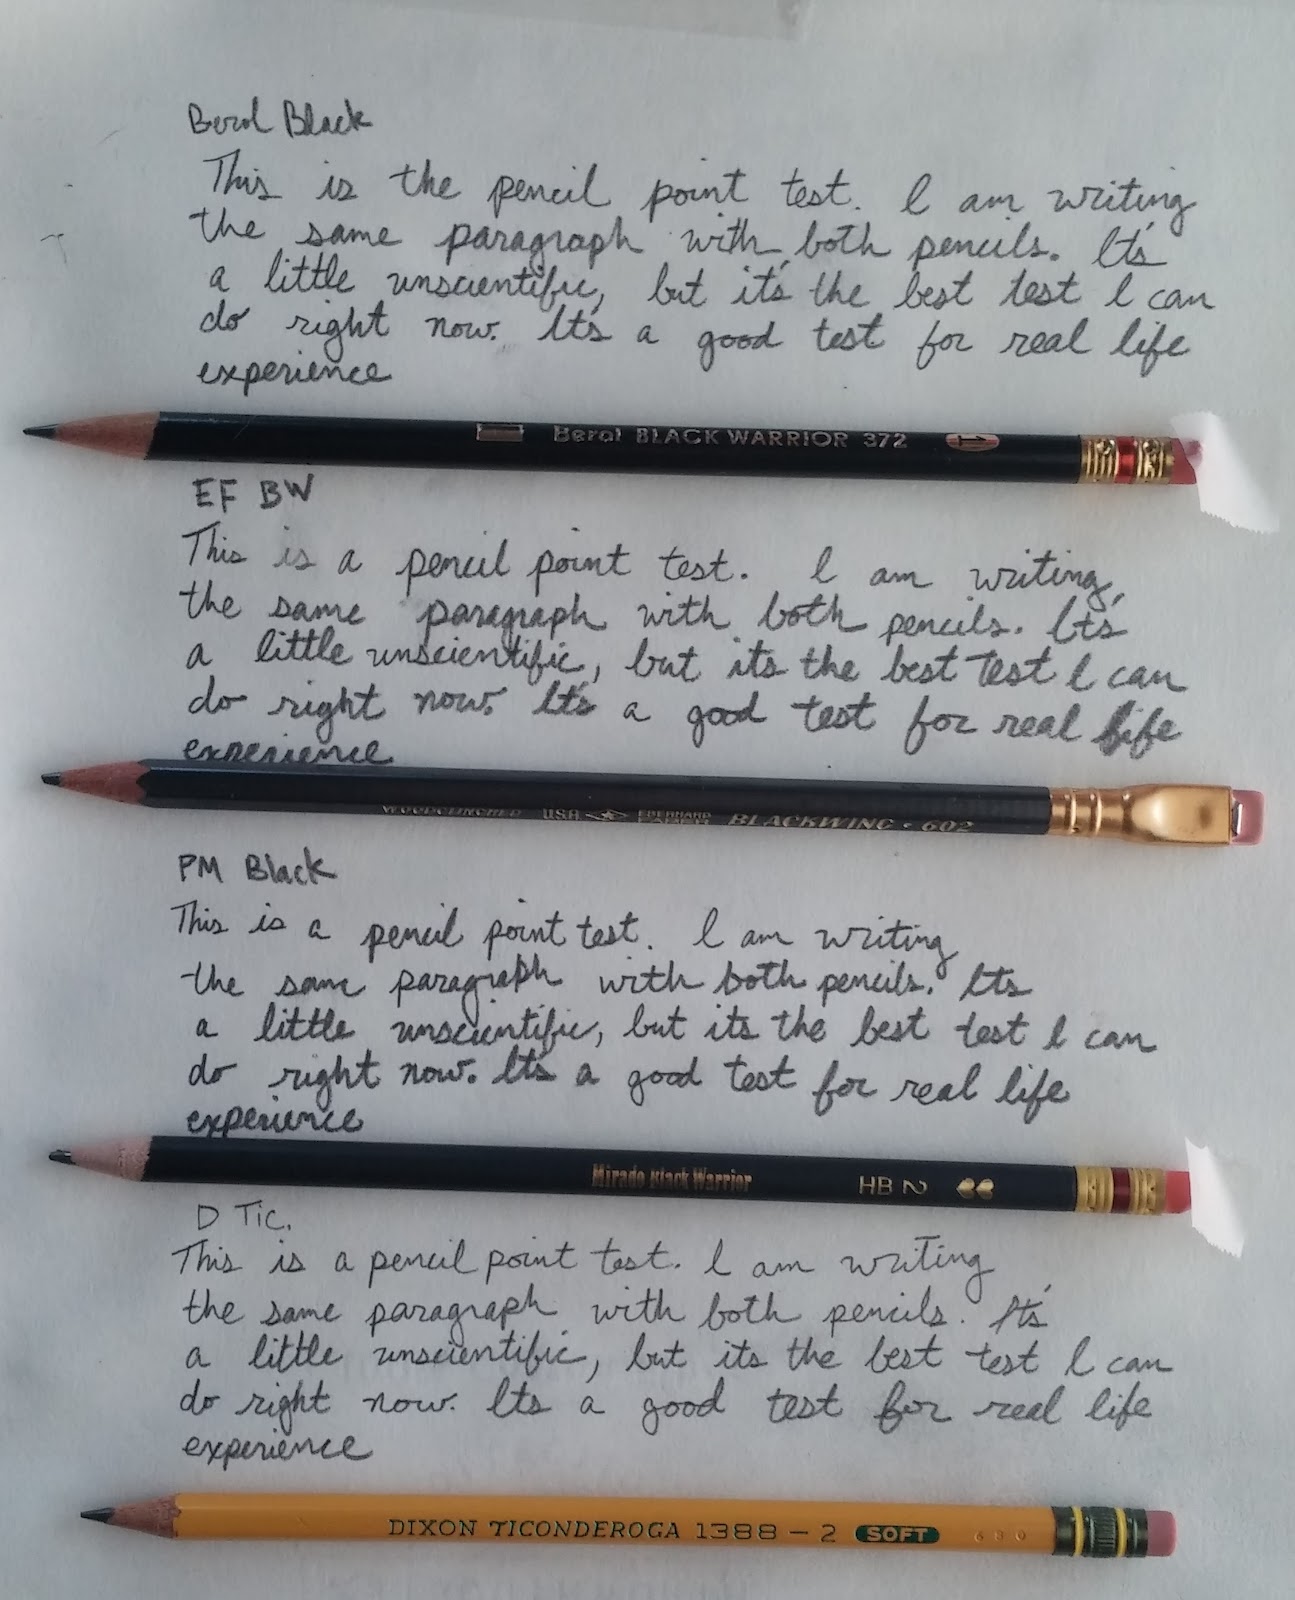 Berol Black
This is the pencil point test. I am writing
the same paragraph with both pencils. It's
a little unscientific, but it's the best test I can
do right now. It's a good test for real life
experience
Berol BLACK WARRIOR 372 1
EF BW
This is a pencil point test. I am writing,
the same paragraph with both pencils. It's
a little unscientific, but its the best test I can
do right now. It's a good test for real life
experience
WOODCLINCHED U.S.A. EBERHARD FABER BLACKWING · 602
PM Black
This is a pencil point test. I am writing
the same paragraph with both pencils. Its
a little unscientific, but its the best test I can
do right now. It's a good test for real life
experience
Mirado Black Warrior HB 2
D Tic.
This is a pencil point test. I am writing
the same paragraph with both pencils. It's
a little unscientific, but its the best test I can
do right now. Its a good test for real life
experience
DIXON TICONDEROGA 1388 – 2 SOFT 680